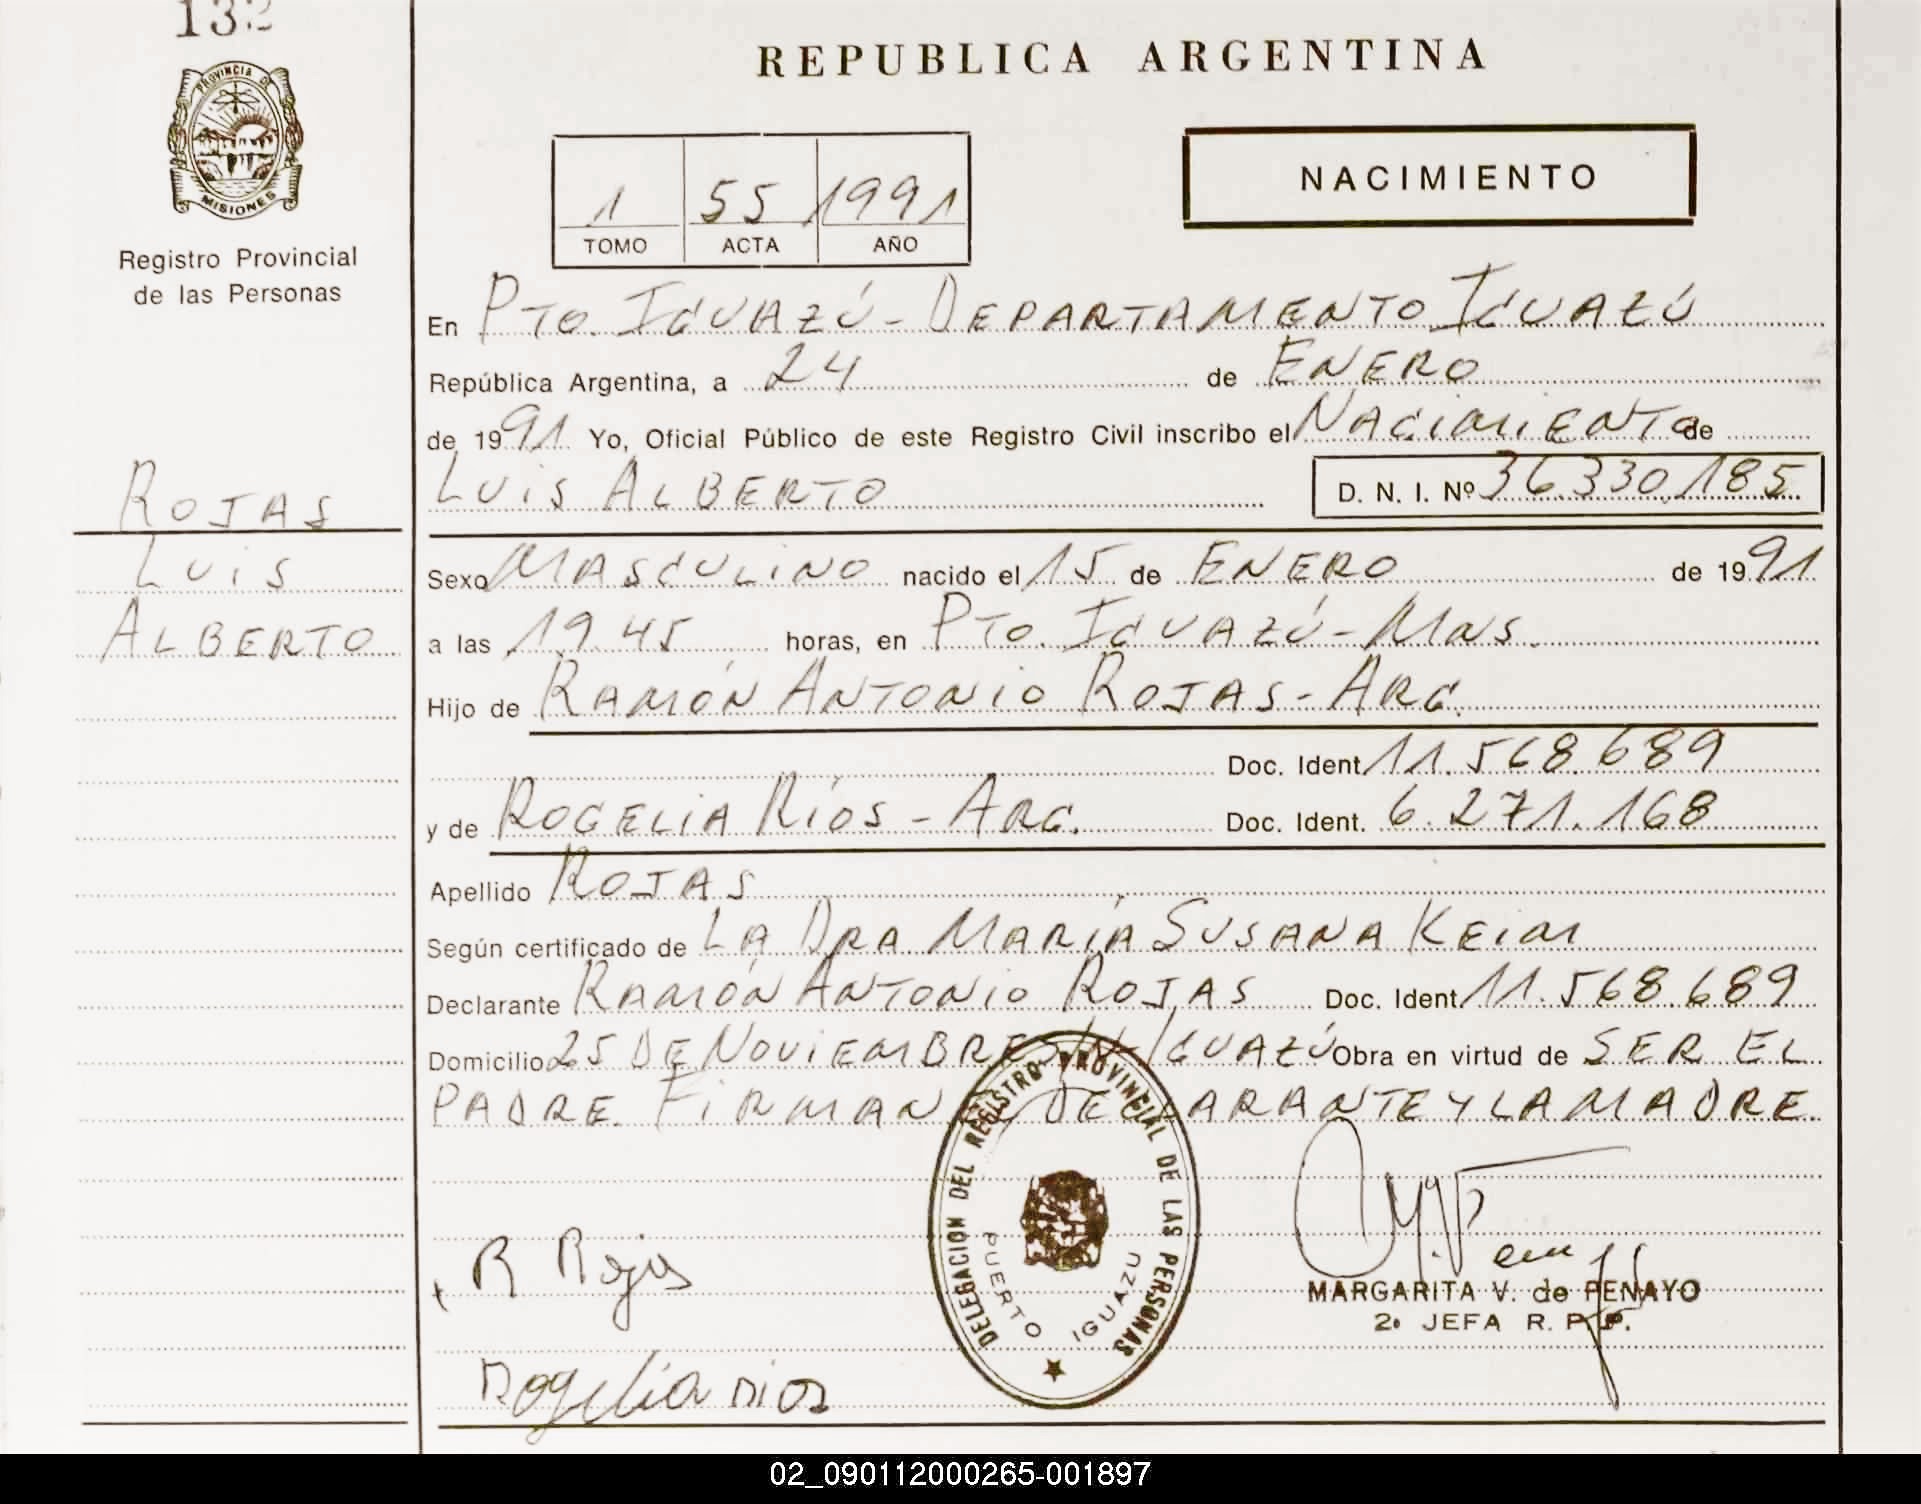 PROVINCIA DE
MISIONES
Registro Provincial
de las Personas
ROJAS
LUIS
ALBERTO
REPUBLICA ARGENTINA
1 55 1991
TOMO ACTA AÑO
NACIMIENTO
En PTO. IGUAZÚ - DEPARTAMENTO IGUAZÚ
República Argentina, a 24 de ENERO
de 1991 Yo, Oficial Público de este Registro Civil inscribo el NACIMIENTO de
LUIS ALBERTO D. N. I. Nº 36.330.185
Sexo MASCULINO nacido el 15 de ENERO de 1991
a las 19.45 horas, en PTO. IGUAZÚ - MNS.
Hijo de RAMÓN ANTONIO ROJAS - ARG.
Doc. Ident. 11.568.689
y de ROGELIA RÍOS - ARG. Doc. Ident. 6.271.168
Apellido ROJAS
Según certificado de LA DRA MARÍA SUSANA KEIM
Declarante RAMÓN ANTONIO ROJAS Doc. Ident. 11.568.689
Domicilio 25 DE NOVIEMBRE S/N - IGUAZÚ Obra en virtud de SER EL
PADRE. FIRMAN DECLARANTE Y LA MADRE.
DELEGACION DEL REGISTRO PROVINCIAL DE LAS PERSONAS
PUERTO IGUAZU
R Rojas
Rogelia rios
MARGARITA V. de PENAYO
2º JEFA R. P. P.
02_090112000265-001897